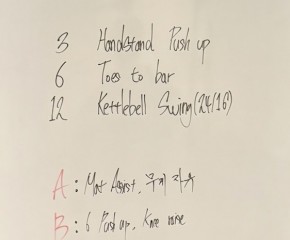 3 Handstand Push up
6 Toes to bar
12 Kettlebell Swing (24/16)
A : Mat Assist, 무게
B : 6 Push up, Knee raise